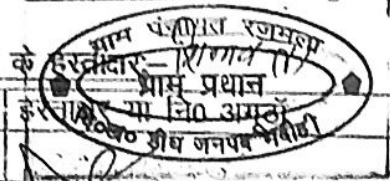 ग्राम पंचायत रजमला
के हस्ताक्षर
ग्राम प्रधान
हस्ताक्षर या नि0 अगूठा
वि0ख0 डीघ जनपद भदोही